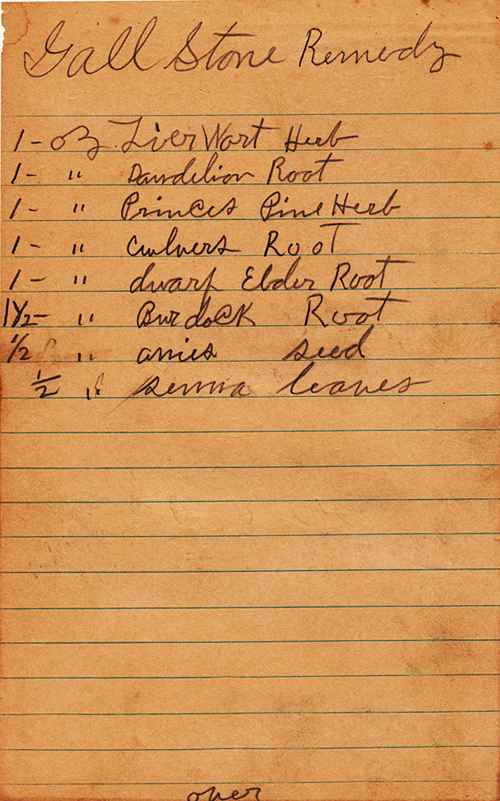 Gall Stone Remedy
1- oz LiverWort Herb
1- " Dandelion Root
1- " Princes Pine Herb
1- " Culvers Root
1- " dwarf Elder Root
1 1/2- " Burdock Root
1/2 " anies seed
1/2 " senna leaves
over